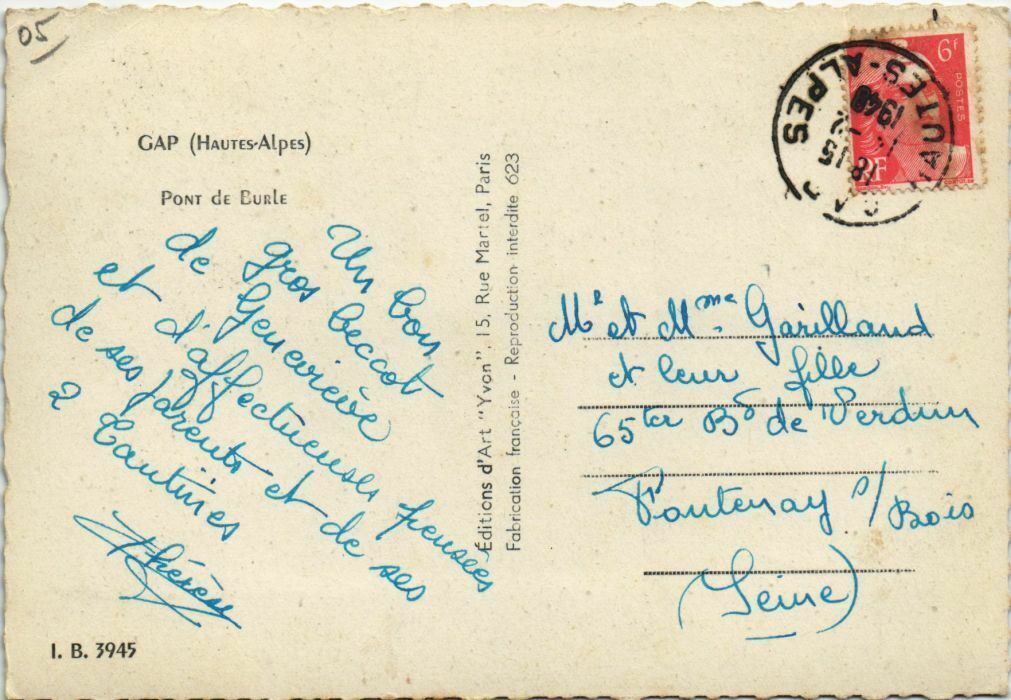 05
GAP (HAUTES-ALPES)
PONT DE BURLE
Un bon
gros beccot
de Geneviève
et d'affectueuses pensées
de ses parents et de ses
2 Tantines
Thérèse
I. B. 3945
Éditions d'Art "Yvon", 15, Rue Martel, Paris
Fabrication française - Reproduction interdite 623
6F
POSTES
RF
HAUTES-ALPES
GAP
18-15
1948
Mr et Mme Garilland
et leur fille
65ter Bd de Verdun
Fontenay s/ Bois
(Seine)